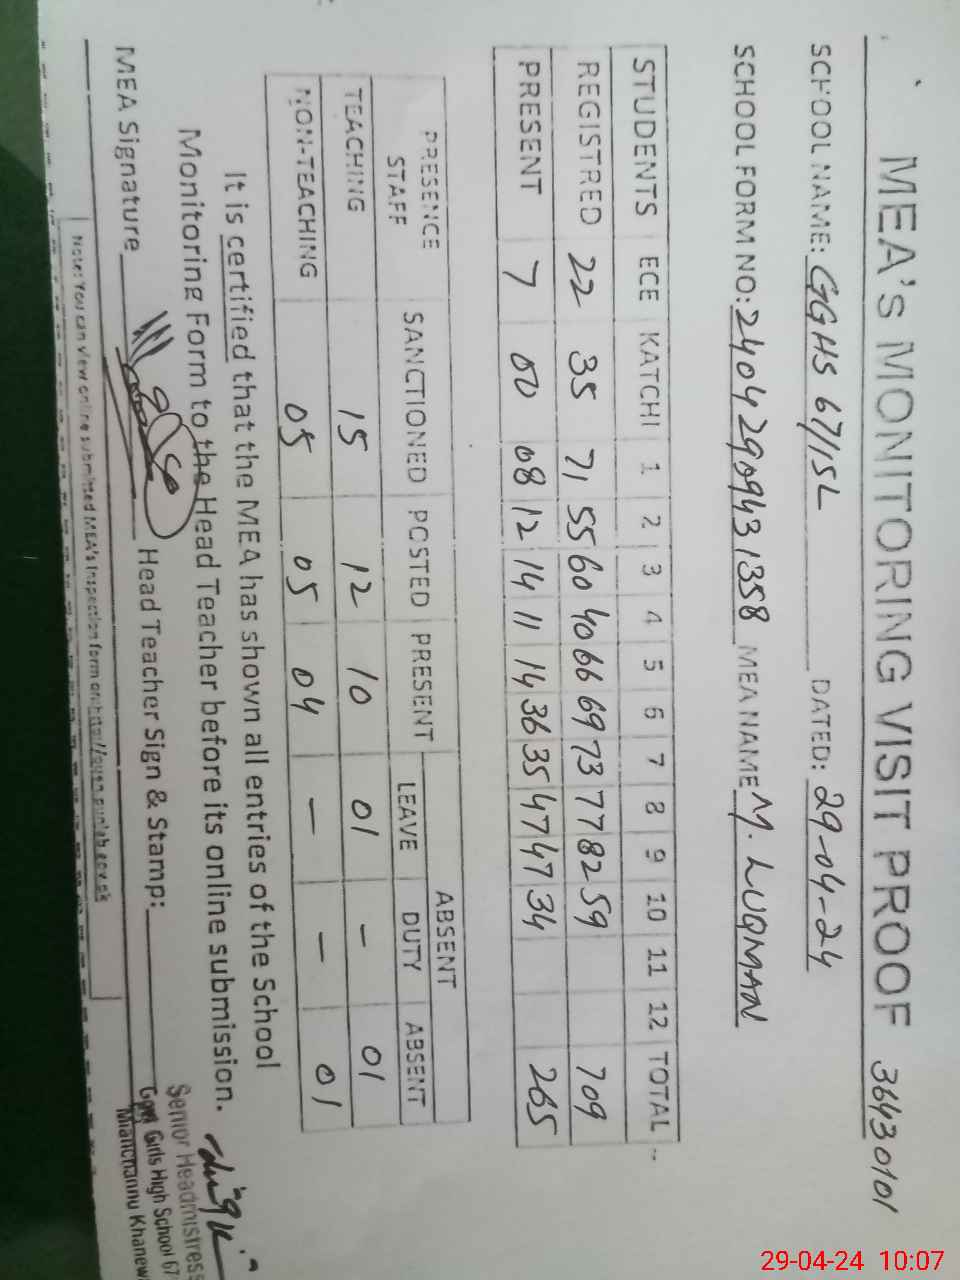 MEA's MONITORING VISIT PROOF 36430101
SCHOOL NAME: GGHS 67/15L DATED: 29-04-24
SCHOOL FORM NO: 24042909431358 MEA NAME M. LUQMAN
STUDENTS ECE KATCHI 1 2 3 4 5 6 7 8 9 10 11 12 TOTAL
REGISTRED 22 35 71 55 60 40 66 69 73 77 82 59 709
PRESENT 7 00 08 12 14 11 14 36 35 47 47 34 265
PRESENCE STAFF SANCTIONED POSTED PRESENT ABSENT
LEAVE DUTY ABSENT
TEACHING 15 12 10 01 - 01
NON-TEACHING 05 05 04 - - 01
It is certified that the MEA has shown all entries of the School
Monitoring Form to the Head Teacher before its online submission.
MEA Signature Head Teacher Sign & Stamp:
Senior Headmistress
Govt Girls High School 67
Mianchannu Khanew
Note: You can view online submitted MEA's Inspection form on: http://open.punjab.gov.pk
29-04-24 10:07